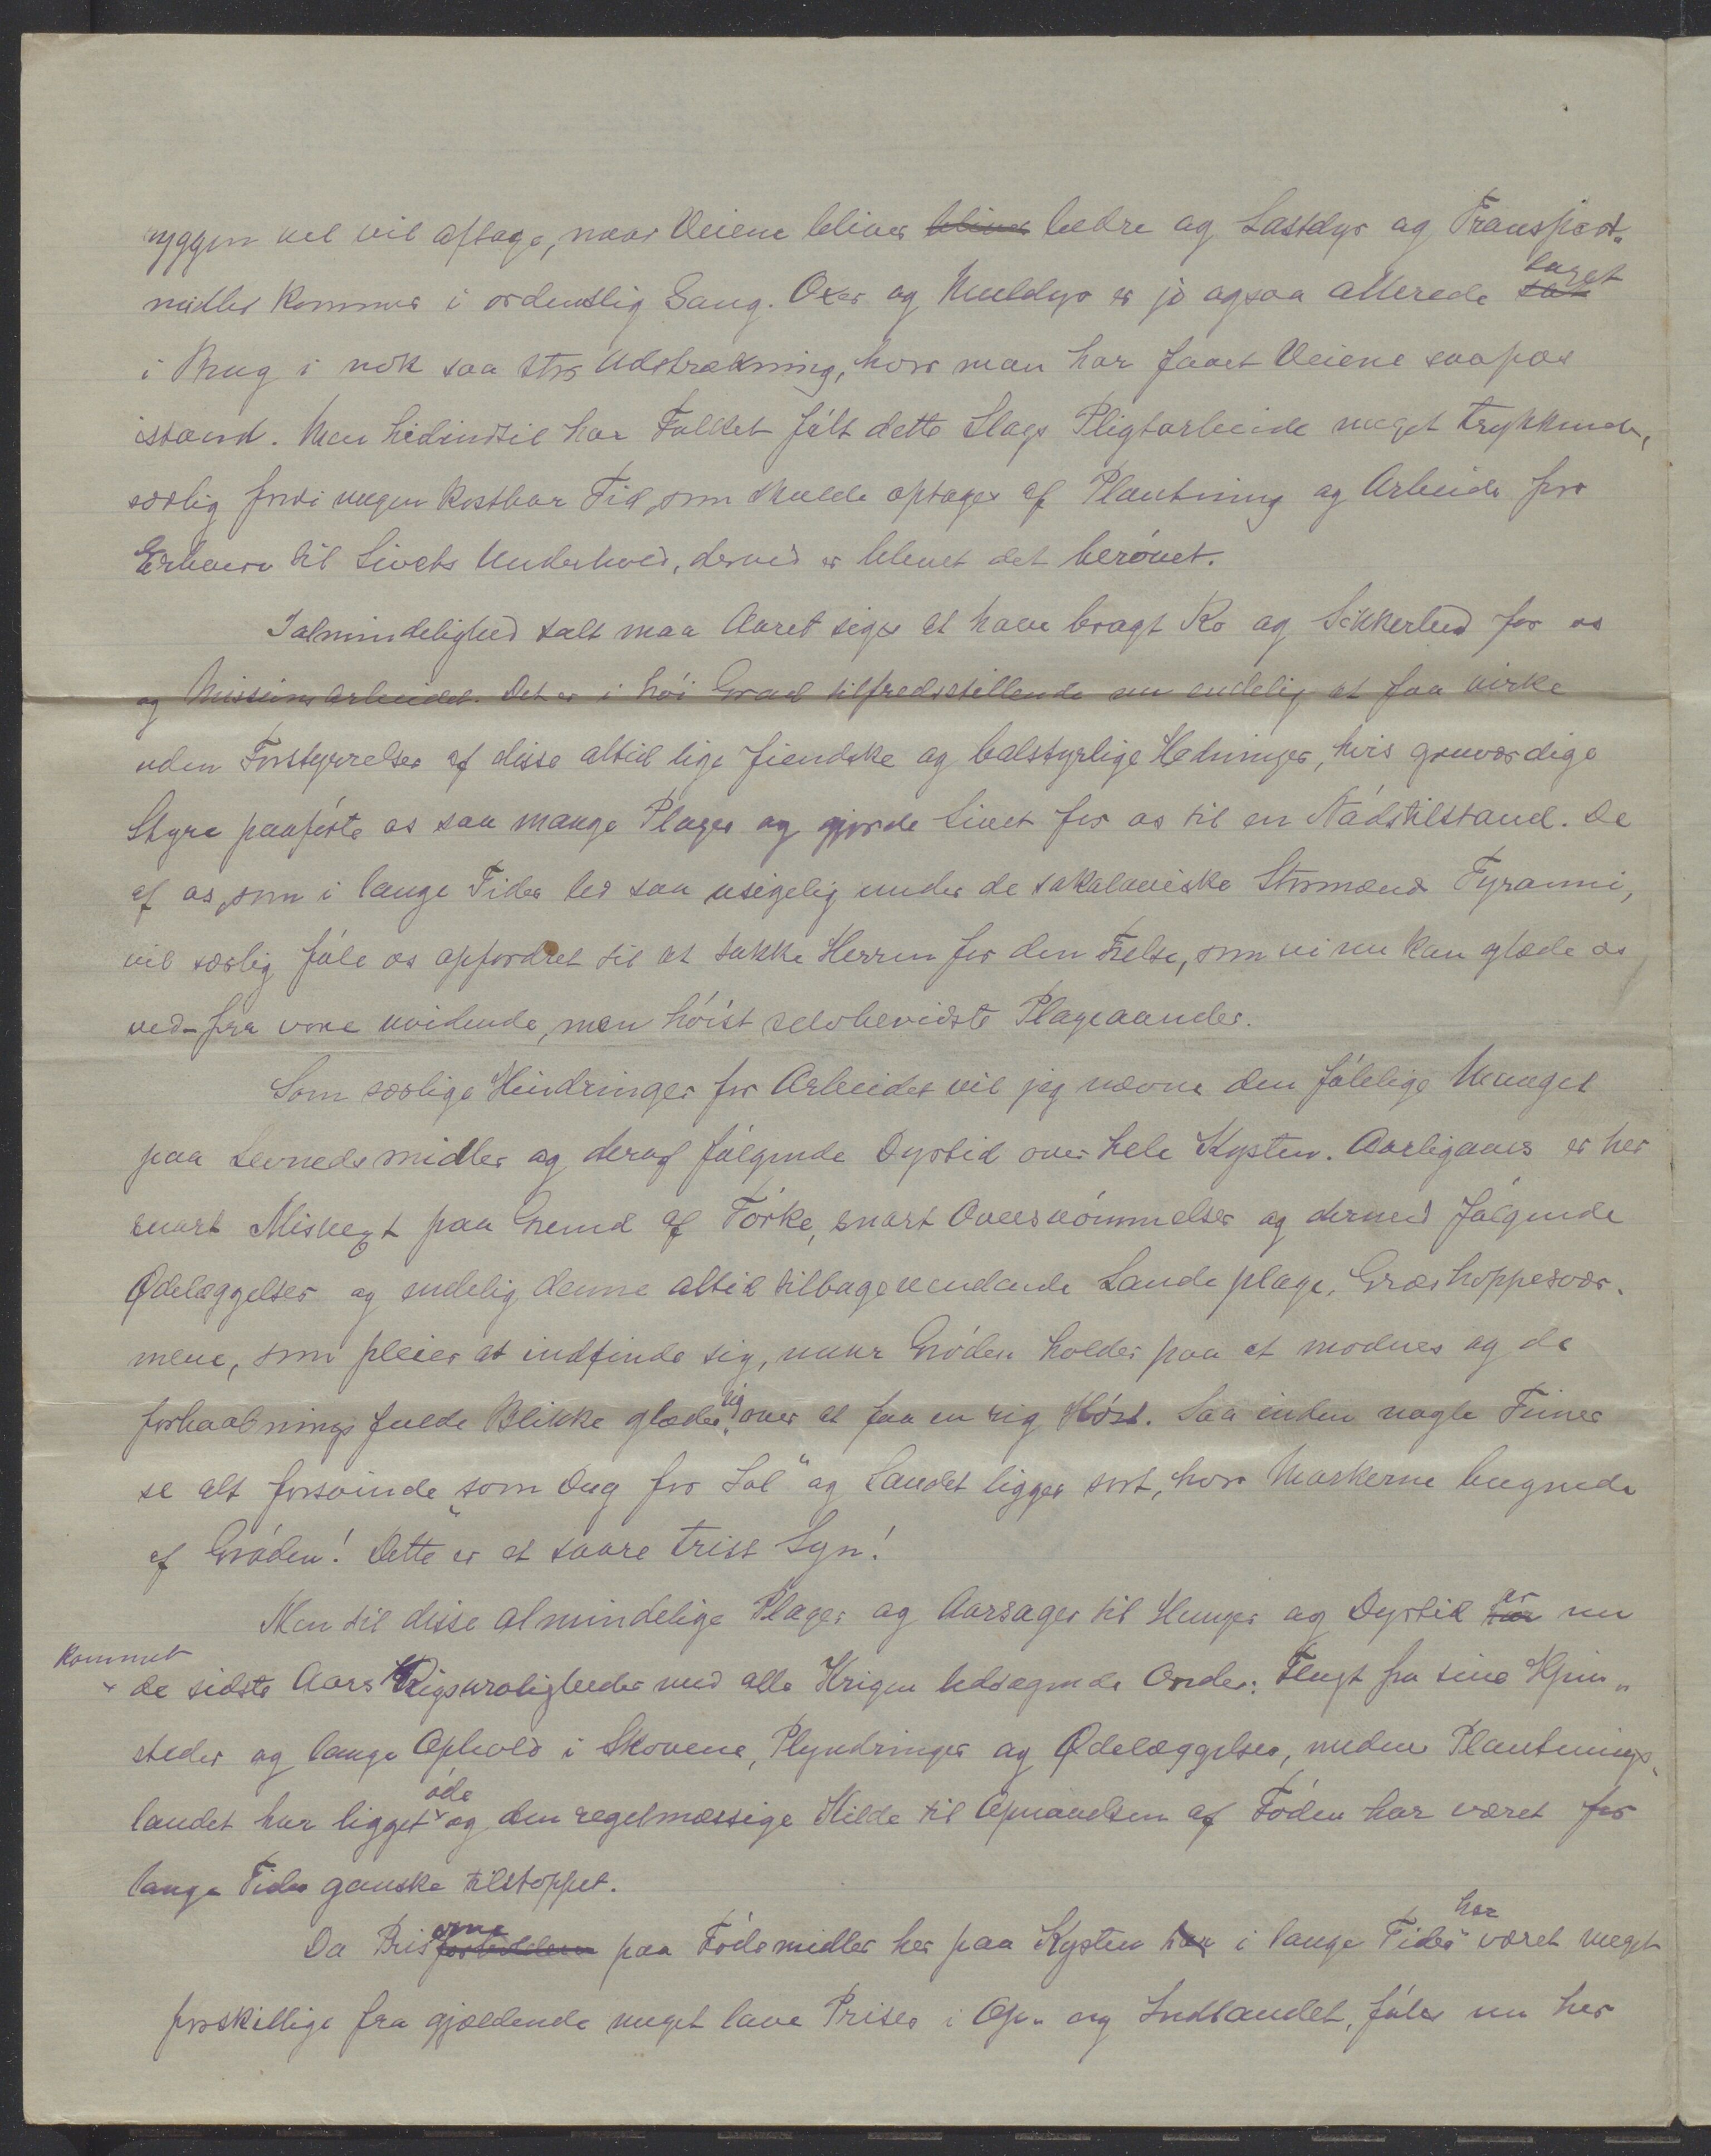 ryggen vel vil aftage, naar Veiene bliver bliver bedre og Lastdyr og Transport-
midler kommer i ordentlig Gang. Oxer og Muldyr er jo ogsaa allerede taget
i Brug i nok saa stor Udstrækning, hvor man har faaet Veiene saapas
istand. Men hidindtil har Folket følt dette Slags Pligtarbeide meget trykkende,
særlig fordi megen kostbar Tid, som skulde optages af Plantning og Arbeide for
Erhverv til Livets Underhold, derved er blevet det berøvet.
I almindelighed talt maa Aaret siges at have bragt Ro og Sikkerhed for os
og Missionsarbeidet. Det er i høi Grad tilfredsstillende nu endelig at faa virke
uden Forstyrrelser af disse altid lige fiendske og balstyrlige Hedninger, hvis grusværdige
Styre paaførte os saa mange Plager og gjorde Livet for os til en Nødstilstand. De
af os, som i lange Tider led saa usigelig under de sakalaviske Stormænds Tyranni,
vil særlig føle os opfordret til at takke Herren for den Frelse, som vi nu kan glæde os
ved - fra vore uvidende, men høist selvbevidste Plageaander.
Som særlige Hindringer for Arbeidet vil jeg nævne den følelige Mangel
paa Levnedsmidler og deraf følgende Dyrtid over hele Kysten. Aarligaars er her
snart Misvext paa Grund af Tørke, snart Oversvømmelser og dermed følgende
Ødelæggelser og endelig denne altid tilbagevendende Landeplage, Græshoppesvær-
mene, som pleier at indfinde sig, naar Grøden holder paa at modnes og de
forhaabningsfulde Blikke glæder sig over at faa en rig Høst. Saa inden nogle Timer
se alt forsvinde "som Dug for Sol" og Landet ligger sort, hvor Markerne bugnede
af Grøden! Dette er et saare trist Syn!
Men til disse almindelige Plager og Aarsager til Hunger og Dyrtid har er nu
kommet de sidste Aars Krigsuroligheder med alle Krigen ledsagende Onder: Flugt fra sine Hjem-
steder og lange Ophold i Skovene, Plyndringer og Ødelæggelser, medens Plantnings-
landet har ligget øde og den regelmæssige Kilde til Opnaaelsen af Føden har været for
lange Tider ganske tilstoppet.
Da Priserne forholdene paa Fødemidler her paa Kysten har i lange Tider har været meget
forskillige fra gjældende meget lave Priser i Op- og Indlandet, føles nu her